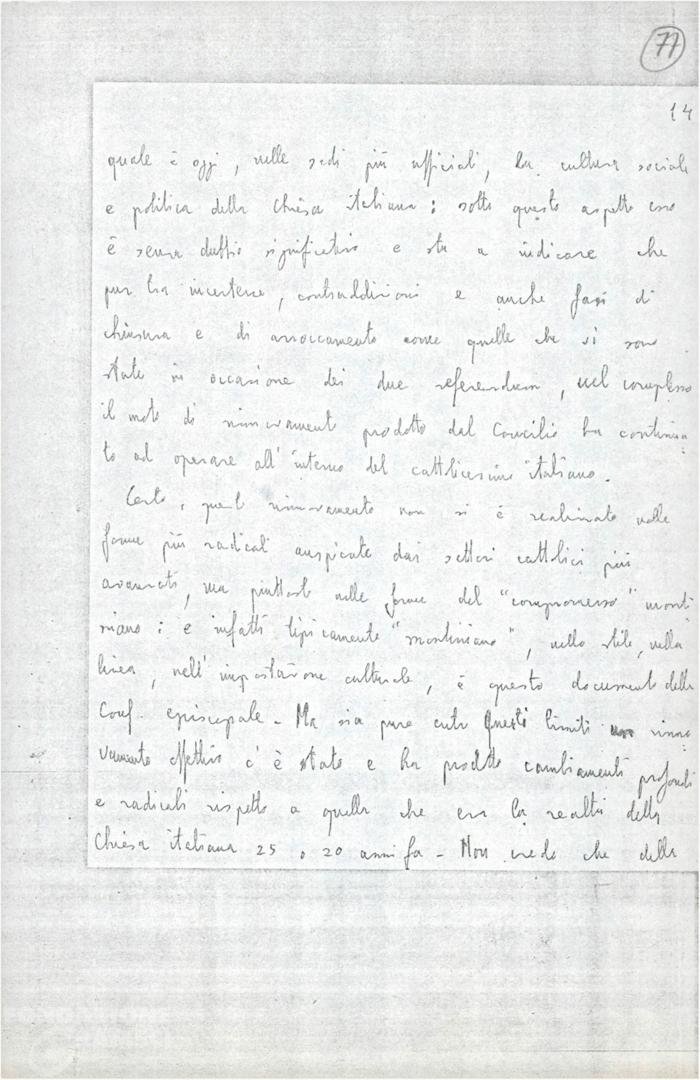 77
14
quale è oggi, nelle sedi più ufficiali, la cultura sociale
e politica della Chiesa italiana: sotto questo aspetto esso
è senza dubbio significativo e sta a indicare che
pur tra incertezze, contraddizioni e anche fasi di
chiusura e di arroccamento come quelle che si sono
state in occasione dei due referendum, nel complesso
il moto di rinnovamento prodotto dal Concilio ha continua
to ad operare all'interno del cattolicesimo italiano.
Certo, quel rinnovamento non si è realizzato nelle
forme più radicali auspicate dai settori cattolici più
avanzati, ma piuttosto nelle forme del "compromesso" monti
niano: e infatti tipicamente "montiniano", nello stile, nella
linea, nell'impostazione culturale, è questo documento della
Conf. episcopale - Ma sia pure entro questi limiti un rinno
vamento effettivo c'è stato e ha prodotto cambiamenti profondi
e radicali rispetto a quella che era la realtà della
Chiesa italiana 25 o 20 anni fa - Non credo che della